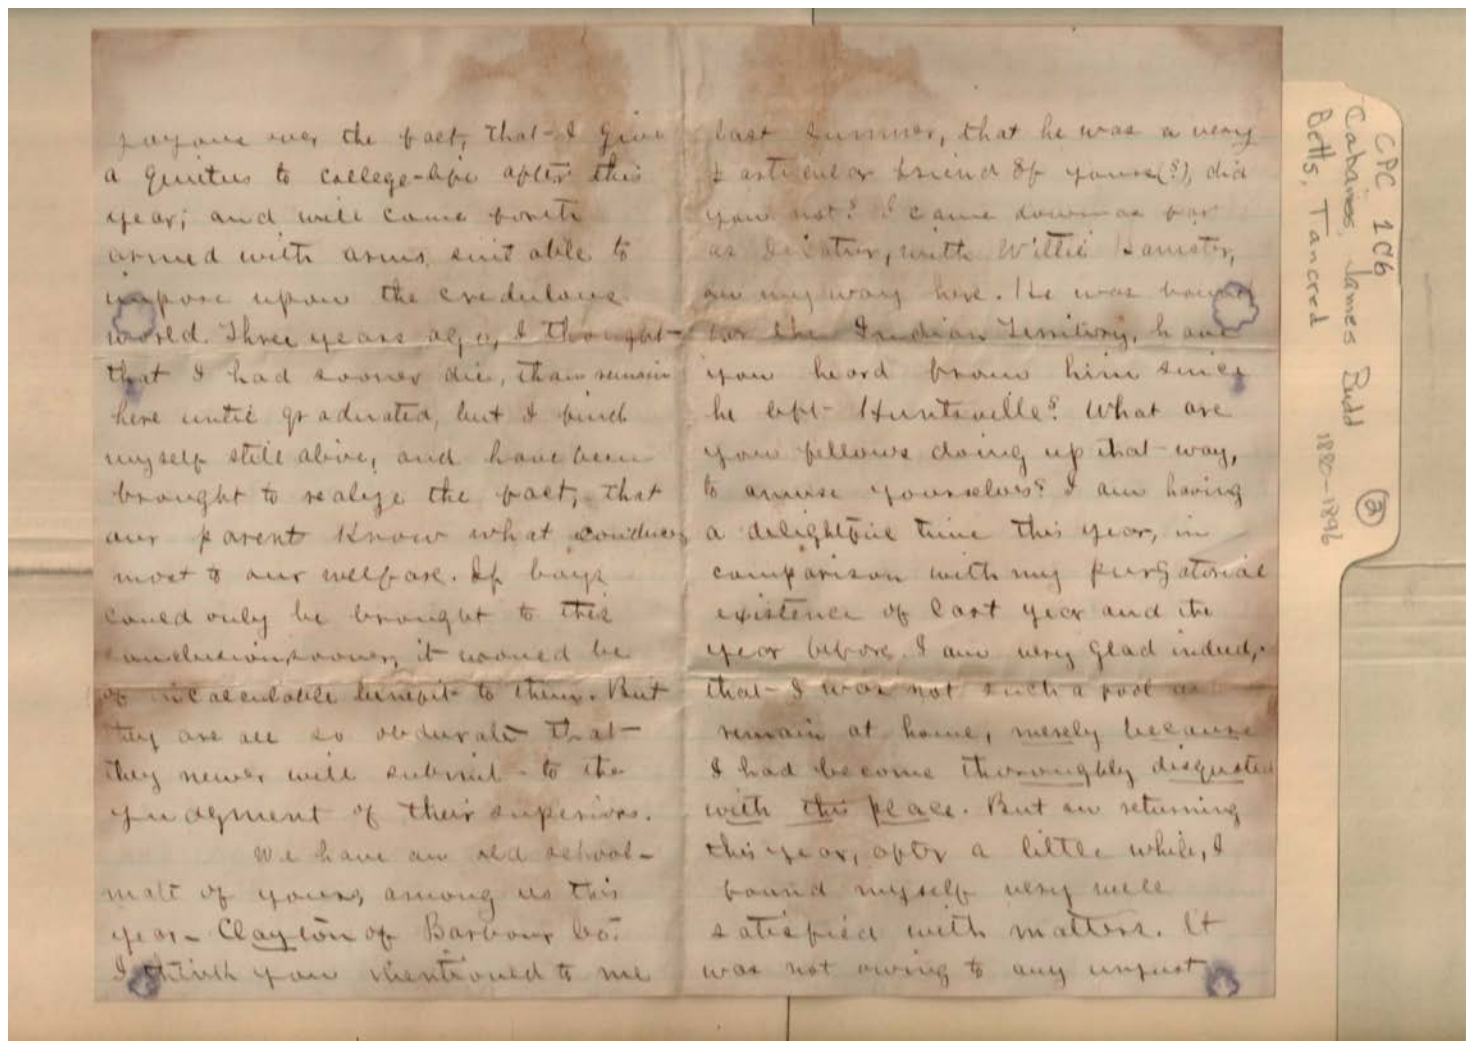 joyous over the fact, that I give
a quietus to college-life after this
year; and will come forth
armed with arms suitable to
impose upon the credulous
world. Three years ago, I thought
that I had sooner die, than remain
here until graduated, but I find
myself still alive, and have been
brought to realize the fact, that
our parent know what conduces
most to our welfare. If boys
could only be brought to this
conclusion sooner, it would be
of incalculable benefit to them. But
they are all so obdurate that
they never will submit to the
judgment of their superiors.
We have an old school-
mate of yours among us this
year - Clayton of Barbour Co.
I think you mentioned to me
last summer, that he was a very
particular friend of yours(?), did
you not? I came down as far
as Decatur, with Willie Banister,
on my way here. He was bound
for the Indian Territory, have
you heard from him since
he left Huntsville? What are
you fellows doing up that way,
to amuse yourselves? I am having
a delightful time this year, in
comparison with my purgatorial
existence of last year and the
year before. I am very glad indeed,
that I was not such a fool as
remain at home, merely because
I had become thoroughly disgusted
with this place. But on returning
this year, after a little while, I
found myself very well
satisfied with matters. It
was not owing to any unjust
CPC 1C6
Cabaniss, James Budd
Betts, Tancred
1880-1896
(2)